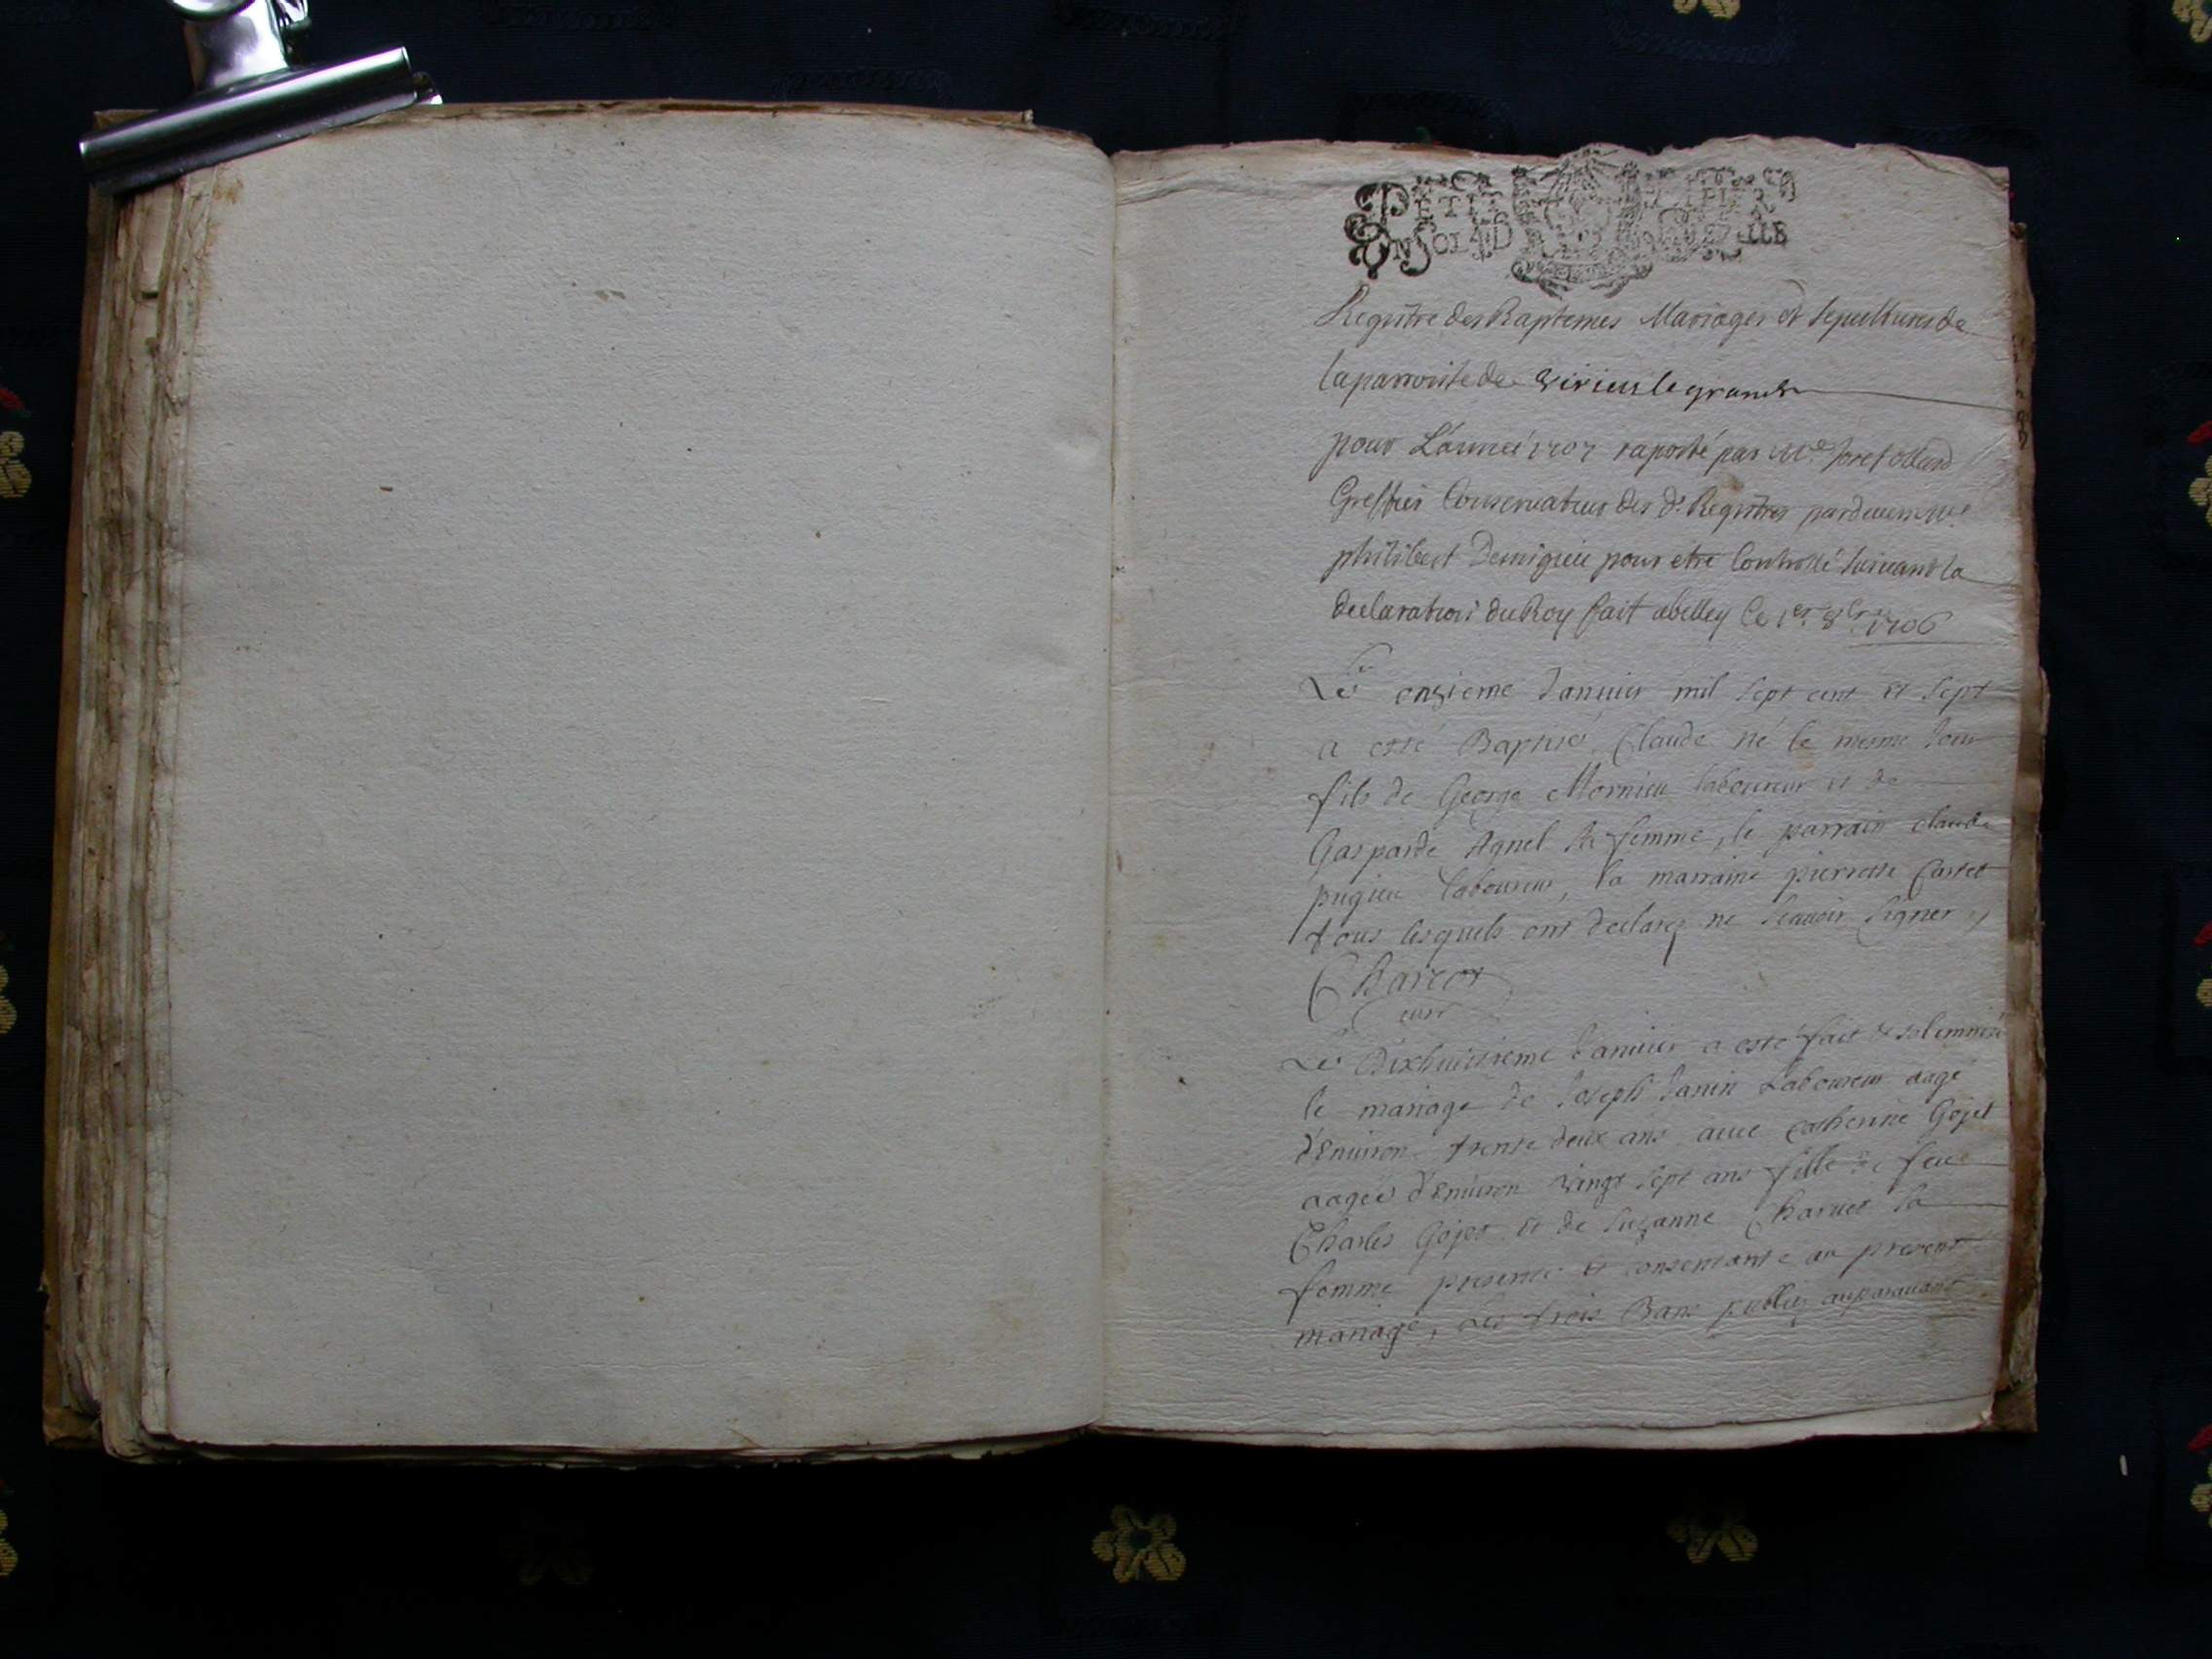 PETIT PAPIER
UN SOL 4 D LLE
Registre des Baptemes Mariages et Sepultures de
la parroisse de Virieu le grand
pour L'année 1707 raporté par Me
Greffier Conservateur des d. Registres pardevers Me
philibert Demigieu pour etre Controllé suivant la
declaration du Roy fait abelley Ce 1er 8bre 1706
Le onzieme Januier mil sept cent et sept
a esté Baptisé Claude né le mesme Jour
fils de George Mornieu laboureur et de
Gasparde Agnel sa femme, le parrain claude
pugieu laboureur, la marraine pierrette Carret
tous lesquels ont declarez ne scauoir signer
Charcot
curé
Le Dixhuictieme Januier a esté fait & solemnisé
le mariage de Joseph Janin Laboureur aagé
d'Enuiron trente deux ans auec Catherine Gojet
aagée d'Enuiron vingt sept ans fille de feu
Charles Gojet et de Suzanne Charuet sa
femme presente et consentante au present
mariage, Les trois Bans publiez auparauant